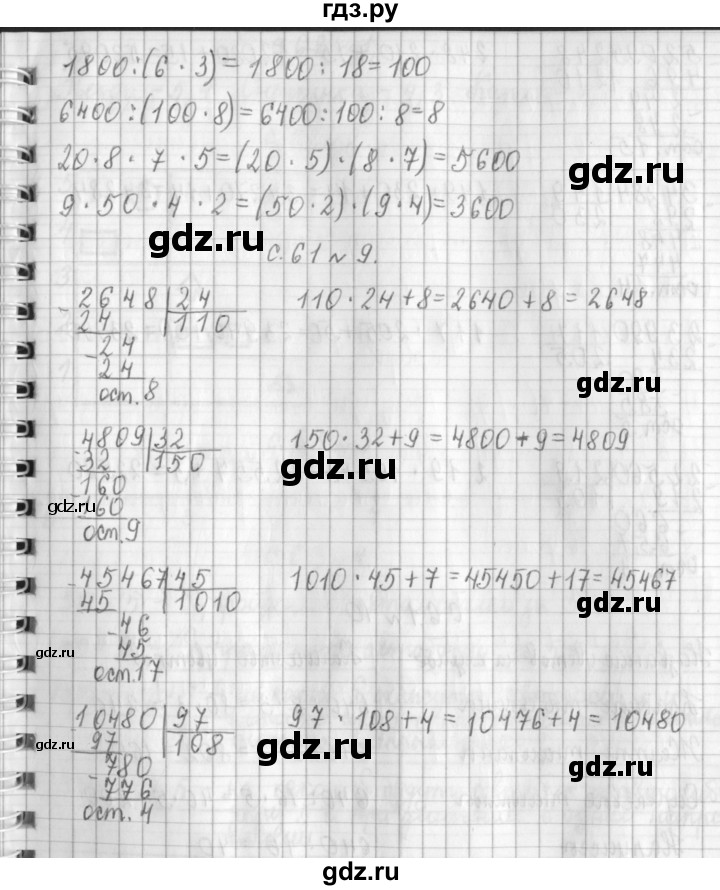 гдз.ру
1800:(6·3)=1800:18=100
6400:(100·8)=6400:100:8=8
20·8·7·5=(20·5)·(8·7)=5600
gdz.ru
9·50·4·2=(50·2)·(9·4)=3600
gdz.ru
с.61 № 9.
2648 24 110·24+8=2640+8=2648
24 110
24
24
gdz.ru
ост.8
4809 32 150·32+9=4800+9=4809
32 150
gdz.ru
160
gdz.ru
160
ост.9
45467 45 1010·45+7=45450+17=45467
45 1010
gdz.ru
46
45
gdz.ru
ост.17
10480 97 97·108+4=10476+4=10480
97 108
gdz.ru
gdz.ru
780
gdz.ru
776
ост.4
gdz.ru